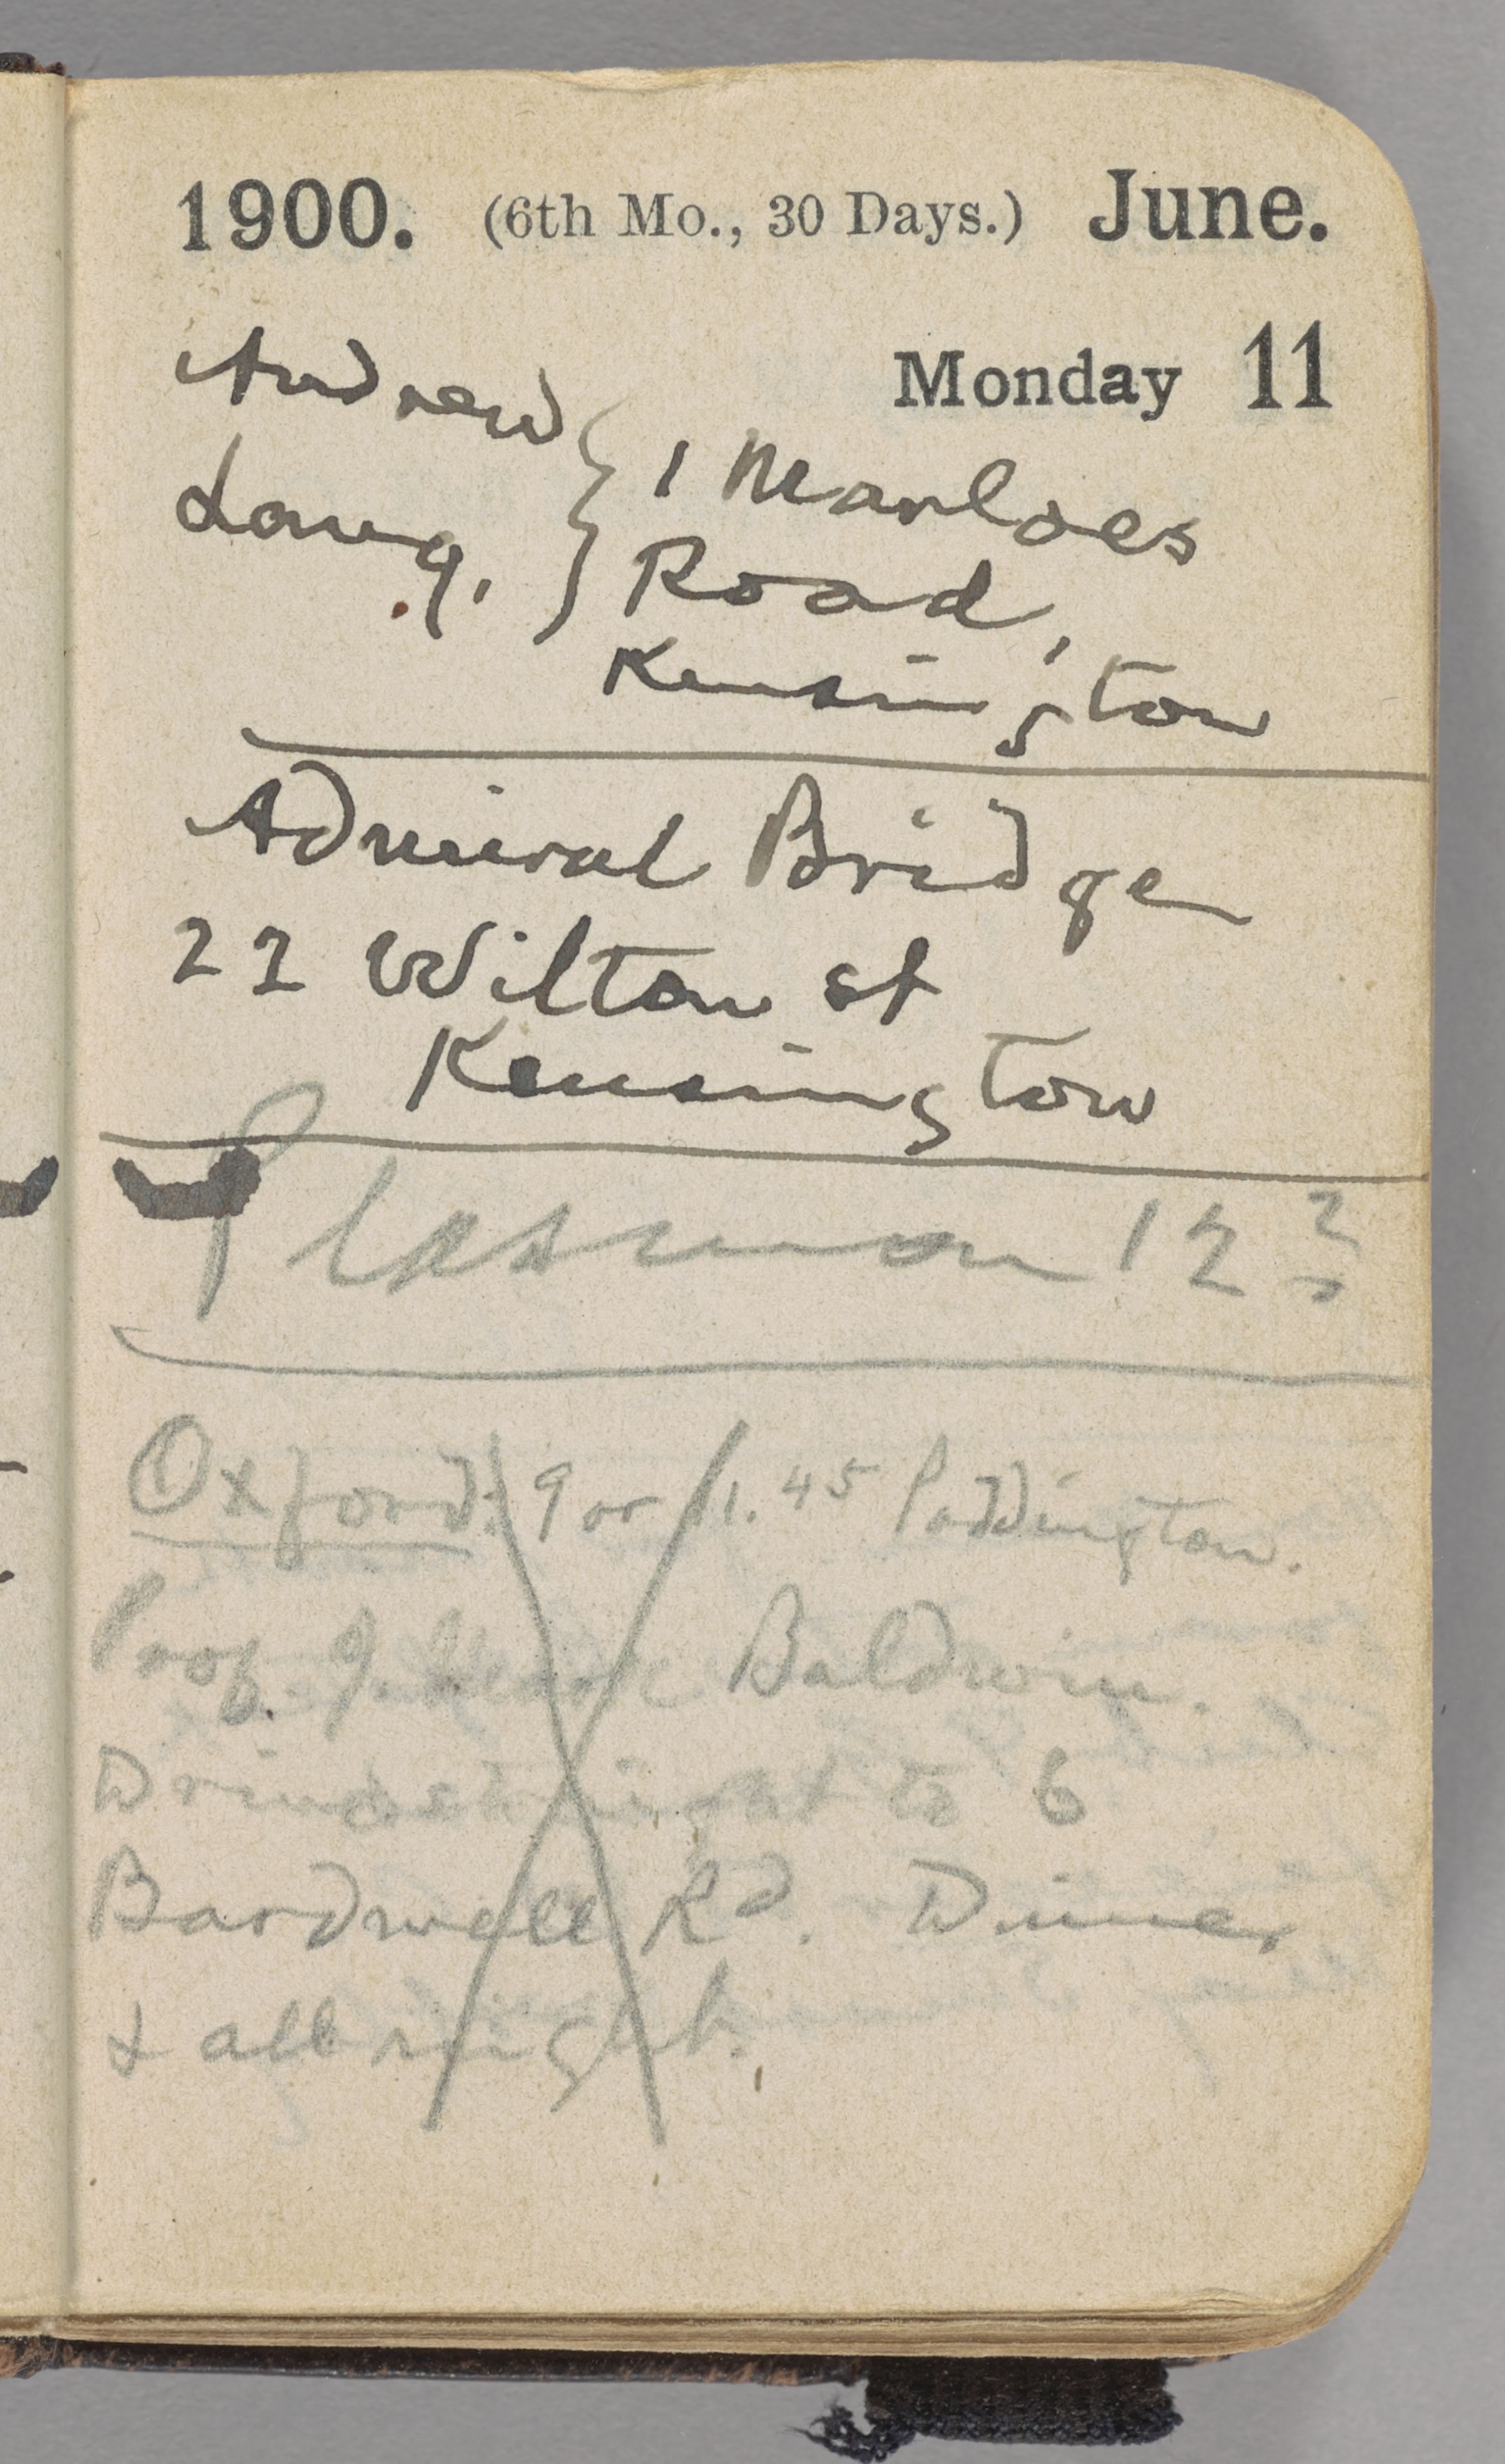 1900. (6th Mo., 30 Days.) June.
Monday 11
Andrew
Lang. } 1 Marloes
Road,
Kensington
Admiral Bridge
22 Wilton st
Kensington
Plasmon 12?
Oxford: 9 or 11.45 Paddington.
Prof. J. Mark Baldwin.
Drive right to 6
Bardwell Rd. Dinner
& all night.